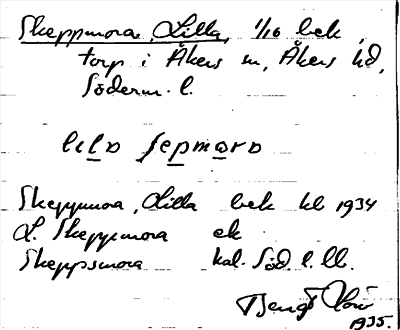 Skeppmora, Lilla, 1/16 bek,
torp i Åkers sn, Åkers hd,
Söderm. l.
lila sepmora
Skeppmora, Lilla bek hl 1934
L. Skeppmora ek
Skeppsmora kal. Söd. l. ll.
Bengt
1935.